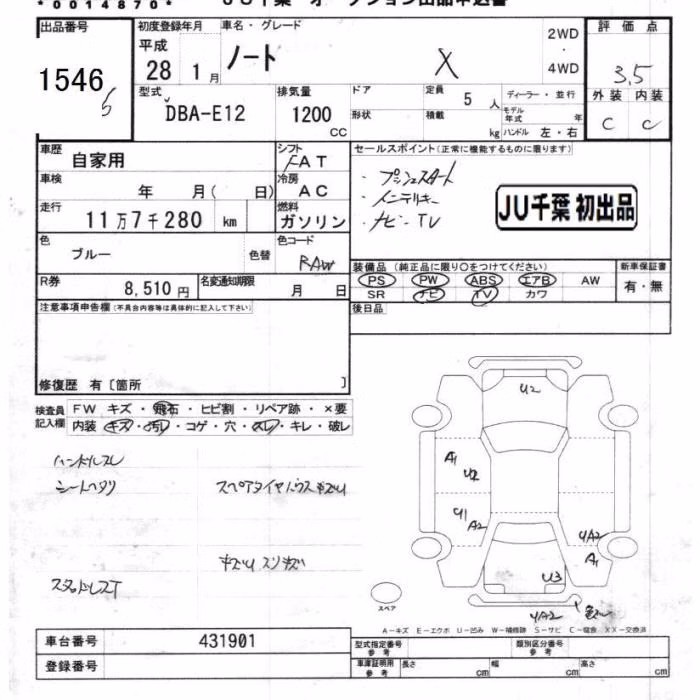 *0014870* JU千葉 オークション出品申込書
出品番号 初度登録年月 車名・グレード 評価点
1546 平成 28年 1月 ノート X 2WD・4WD 3.5
型式 排気量 ドア 定員 ディーラー・並行 外装 内装
DBA-E12 1200 CC 形状 積載 5人 kg モデル年式 年 ハンドル 左・右 C C
車歴 自家用 シフト FAT セールスポイント(正常に機能するものに限ります)
車検 年 月( 日) 冷房 AC ・プッシュスタート
走行 11万7千280 km 燃料 ガソリン ・インテリキー
・ナビ-TV
JU千葉 初出品
色 ブルー 色替 色コード RAW
装備品(純正品に限り○をつけてください) 新車保証書
R券 8,510円 名変通知期限 月 日 PS PW ABS エアB AW 有・無
SR ナビ TV カワ
注意事項申告欄(不具合内容等は具体的に記入して下さい) 後日品
修復歴 有〔箇所 〕
検査員記入欄 FW キズ・飛石・ヒビ割・リペア跡・×要
内装 キズ・汚レ・コゲ・穴・スレ・キレ・破レ
ハンドルスレ
シートヘタリ スペアタイヤハウスキズサリ
キズサリ スリキズ
スタッドレスT
U2
A1 U2
U1 A2
UA2 A1
U3
UA2
スペア
A-キズ E-エクボ U-凹み W-補修跡 S-サビ C-腐食 XX-交換済
車台番号 431901 型式指定番号 参考 類別区分番号 参考
登録番号 車庫証明用 参考 長さ cm 幅 cm 高さ cm